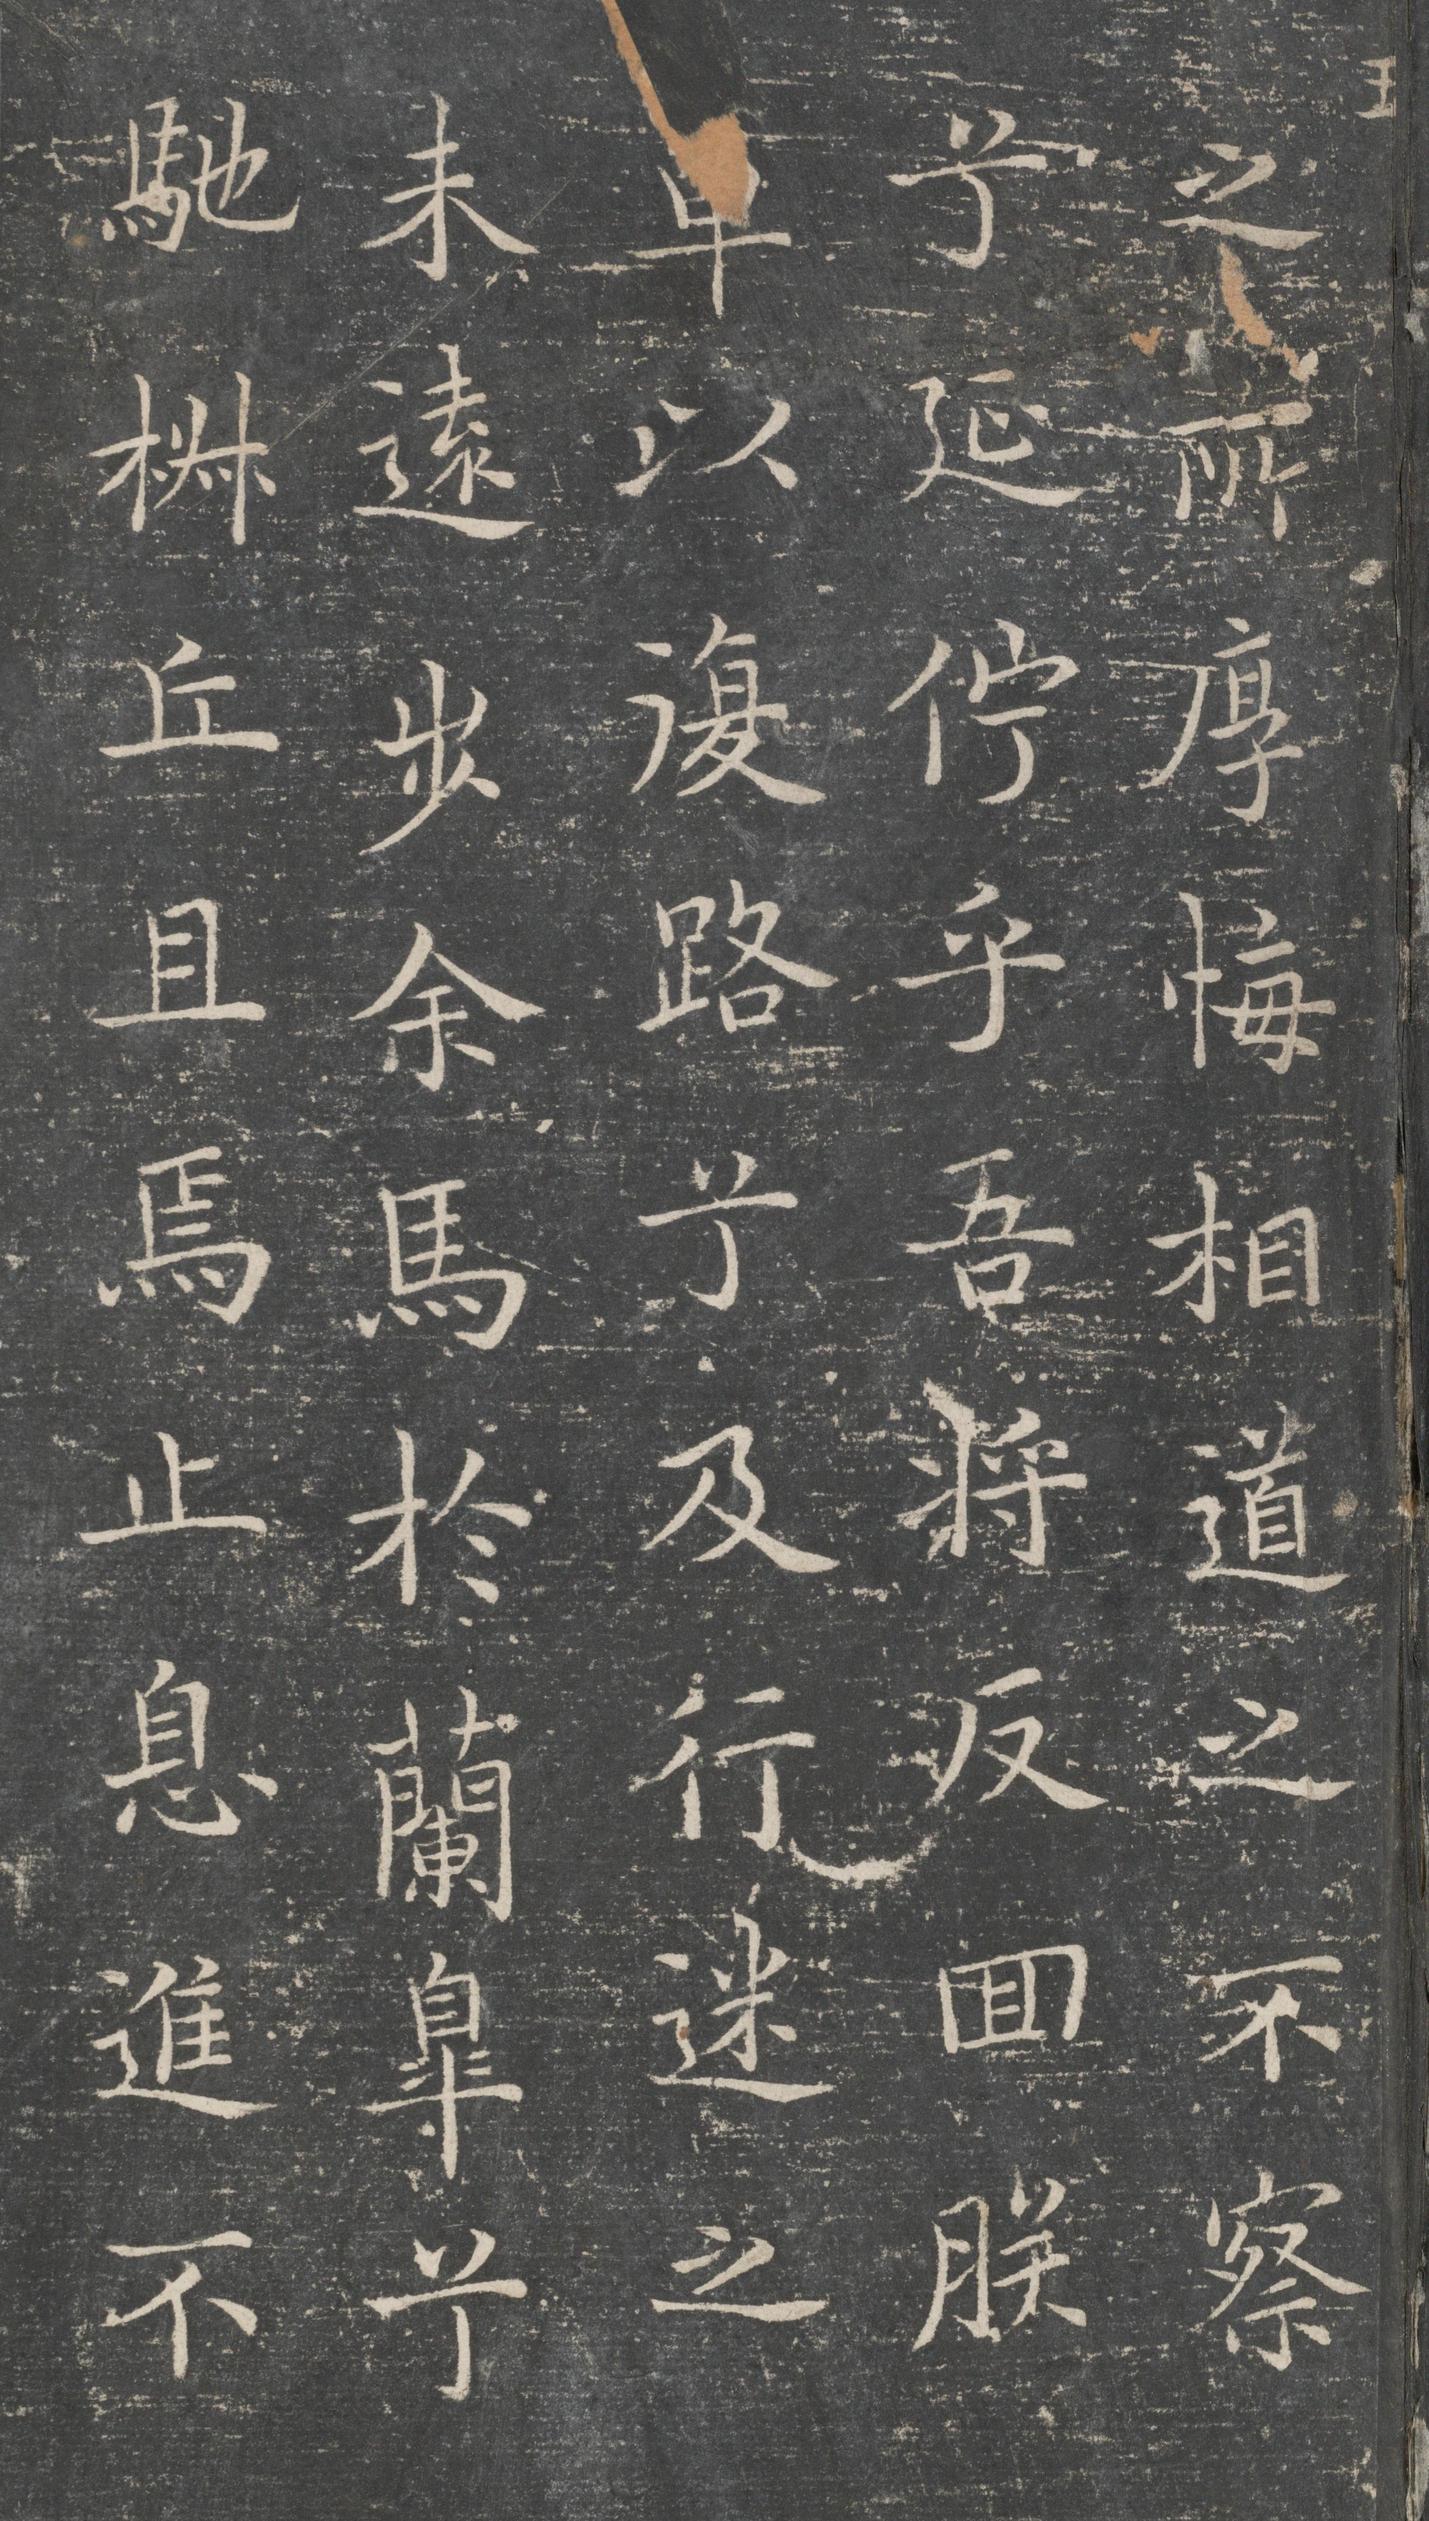 之所厚悔相道之不察
兮延佇乎吾將反囬朕
車以復路兮及行迷之
未遠步余馬於蘭臯兮
馳椒丘且焉止息進不